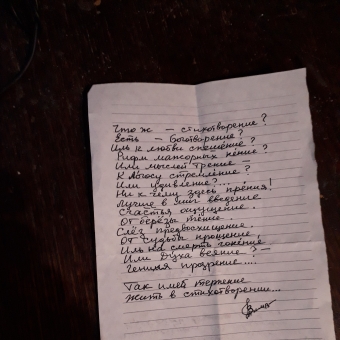 Что ж — стихотворение?
Есть — Боготворение?
Иль к любви спешение?
Рифм мажорных пение?
Или мыслей трение —
К Логосу стремление?
Или удивление?
Ни к чему здесь прения!
Лучше в миг введение
Счастья ощущение.
От берёзы тение.
Слёз предвосхищение.
От судьбы прощение,
Иль на смерть гонение!
Или Духа веяние? —
Гениям прозрение....
Так имей терпение
жить в стихотворении...